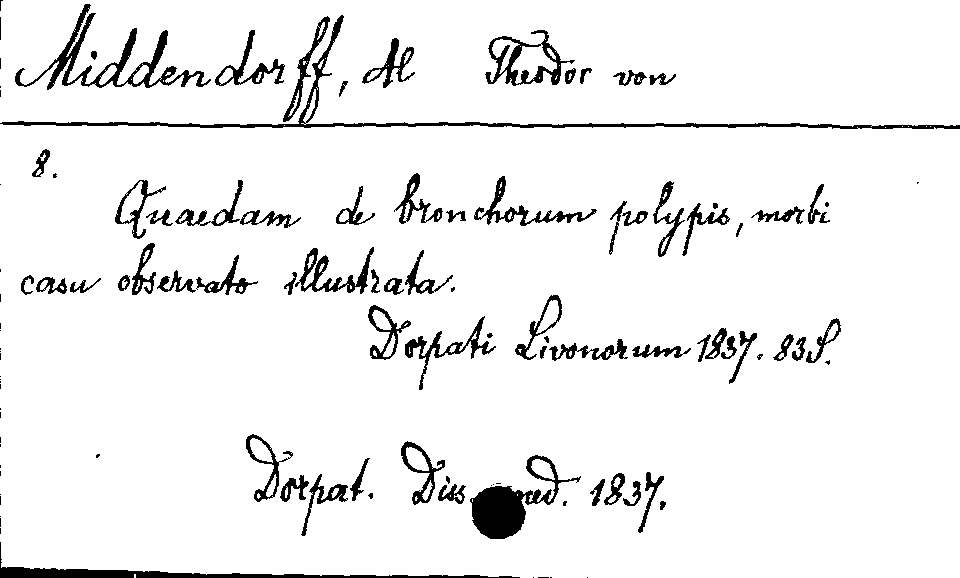 Middendorff, Al Theodor von
8.
Quaedam de bronchorum polypis, morbi
casu observato illustrata.
Dorpati Livonorum 1837. 83 S.
Dorpat. Diss. med. 1837.